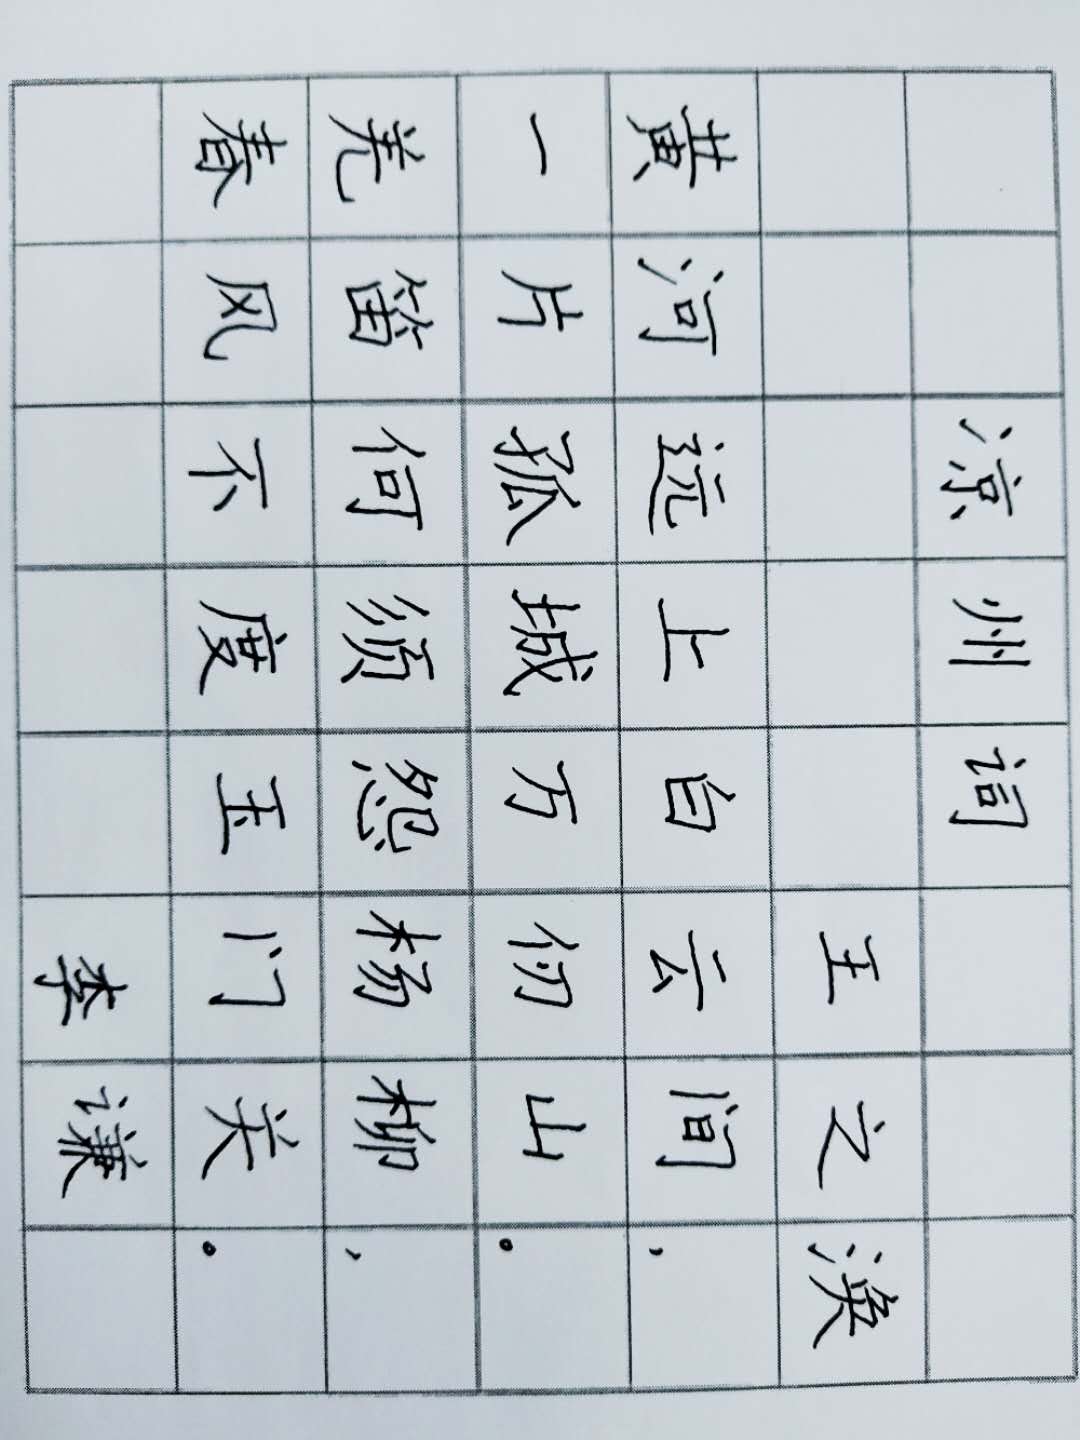 凉州词
王之涣
黄河远上白云间，
一片孤城万仞山。
羌笛何须怨杨柳，
春风不度玉门关。
李谦